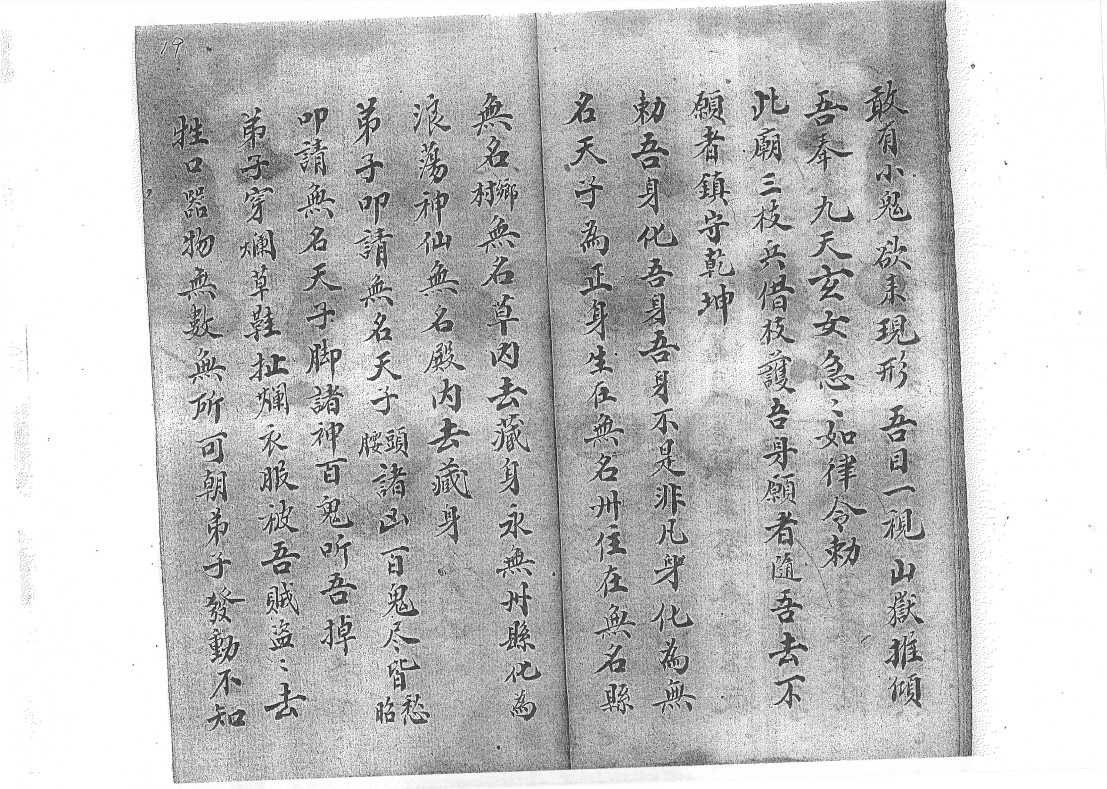 敢有小鬼欲来現形 吾目一視山嶽推傾
吾奉九天玄女急〻如律令勅
此廟三枝兵借枝護吾身願者隨吾去不
願者鎮守乾坤
勅吾身化吾身吾身不是非凡身化為無
名天子為正身生在無名州住在無名縣
無名鄉村無名草內去藏身永無州縣化為
浪蕩神仙無名殿內去藏身
弟子叩請無名天子頭腰諸凶百鬼尽〻皆愁昭
叩請無名天子脚諸神百鬼听吾掉
弟子穿爛草鞋扯爛衣服被吾賊盜〻去
牲口器物無數無所可朝弟子發動不知
19